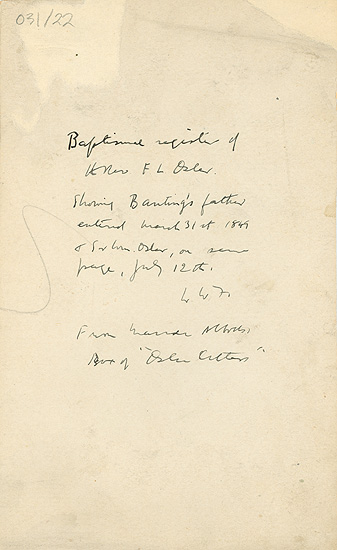 031/22
Baptismal register of
the Rev F L Osler.
Showing Banting's father
entered March 31st 1849
& Sir Wm. Osler, on same
page, July 12th.
W W F.
From
Box of "Osler Letters"